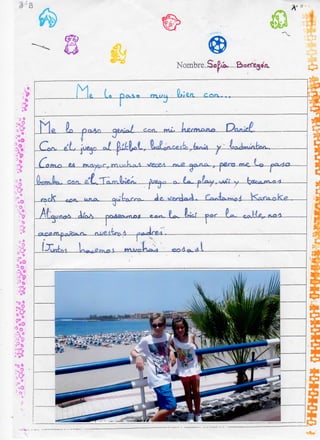 3ºB
Nombre. Sofía Borregón
Me lo paso muy bien con...
Me lo paso genial con mi hermano Daniel
Con él juego al fútbol, baloncesto, tenis y badminton.
Como es mayor, muchas veces me gana, pero me lo paso
bomba con él. También juego a la play, wii y tocamos
rock con una guitarra de verdad. Cantamos Karaoke.
Algunos días paseamos con la bici por la calle, nos
acompañan nuestros padres.
¡Juntos hacemos muchas cosas!